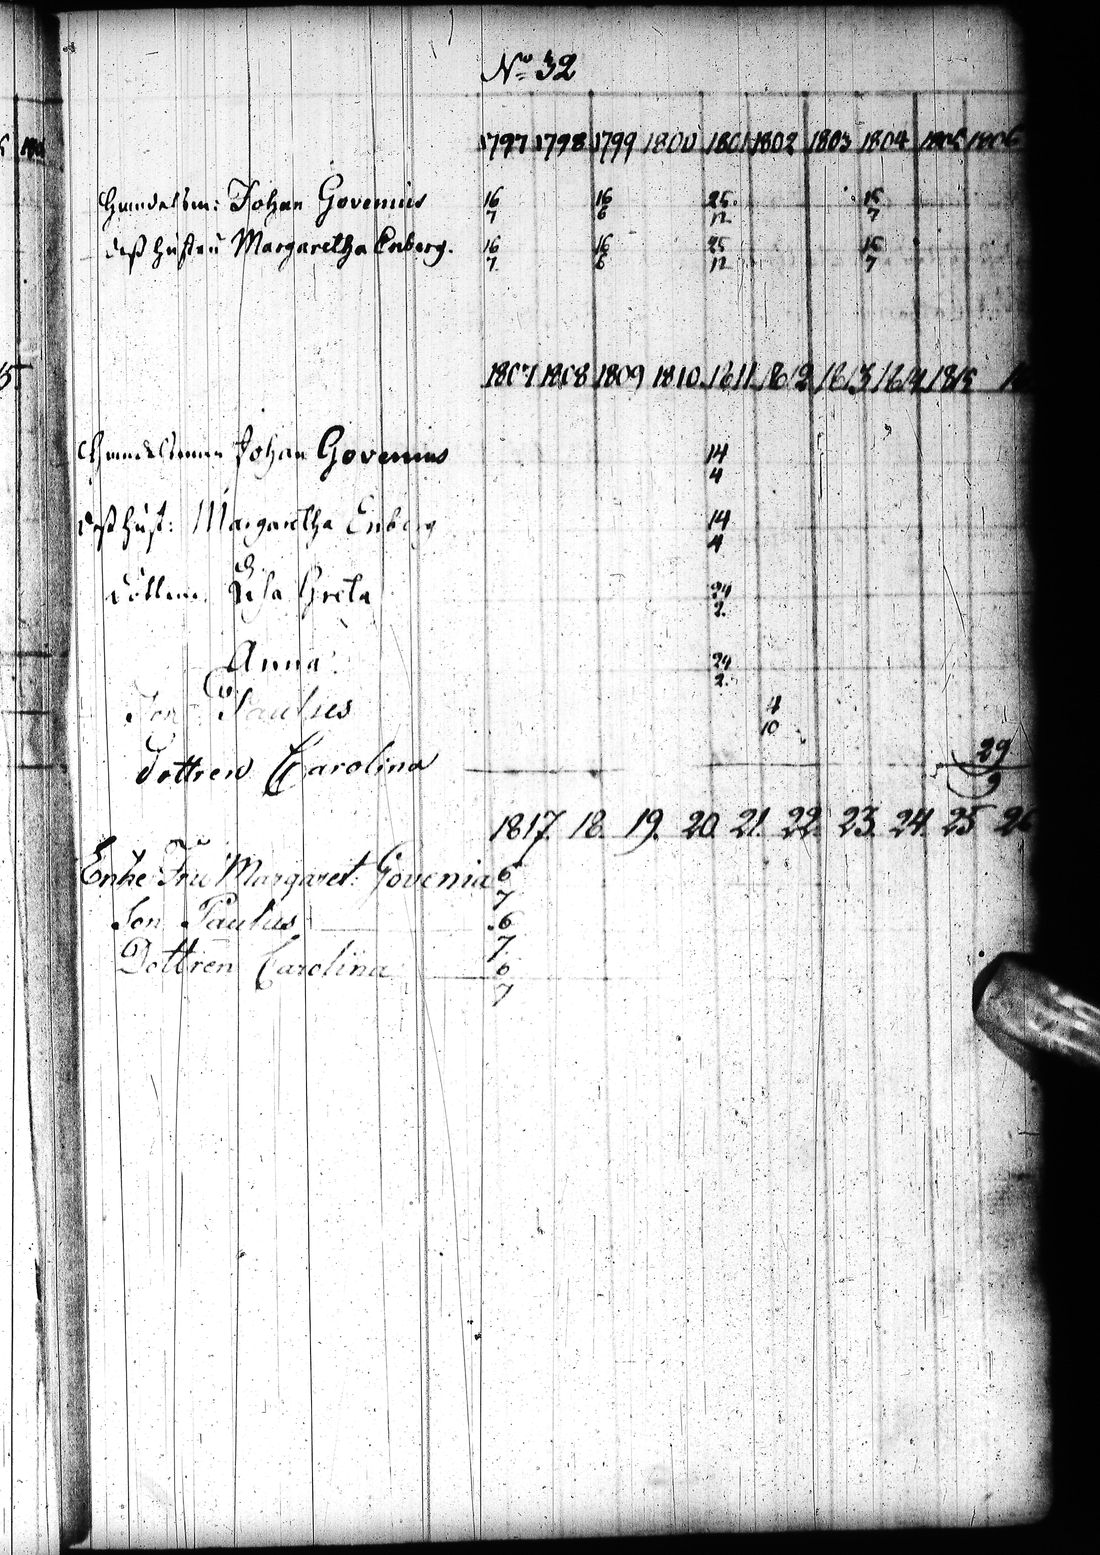 No 32
1797 1798 1799 1800 1801 1802 1803 1804 1805 1806
Handelsm: Johan Govenius 16/7 16/6 25/12 15/7
dess hustru Margaretha Enberg. 16/7 16/6 25/12 15/7
1807 1808 1809 1810 1811 1812 1813 1814 1815 16
Handelsman Johan Govenius 14/4
dess hust: Margaretha Enberg 14/4
Lisa Greta 24/2
Anna 24/2
Son Paulus 4/10
Dottren Carolina 29/9
1817. 18. 19. 20. 21. 22. 23. 24. 25 26
Enke Fru Margaret: Govenia 6/7
Son Paulus 6/7
Dottren Carolina 6/7